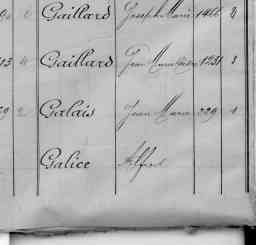 Gaillard Joseph Marie 1466
Gaillard Jean 1231 3
Galais Jean Marie 529 1
Galice Alfred